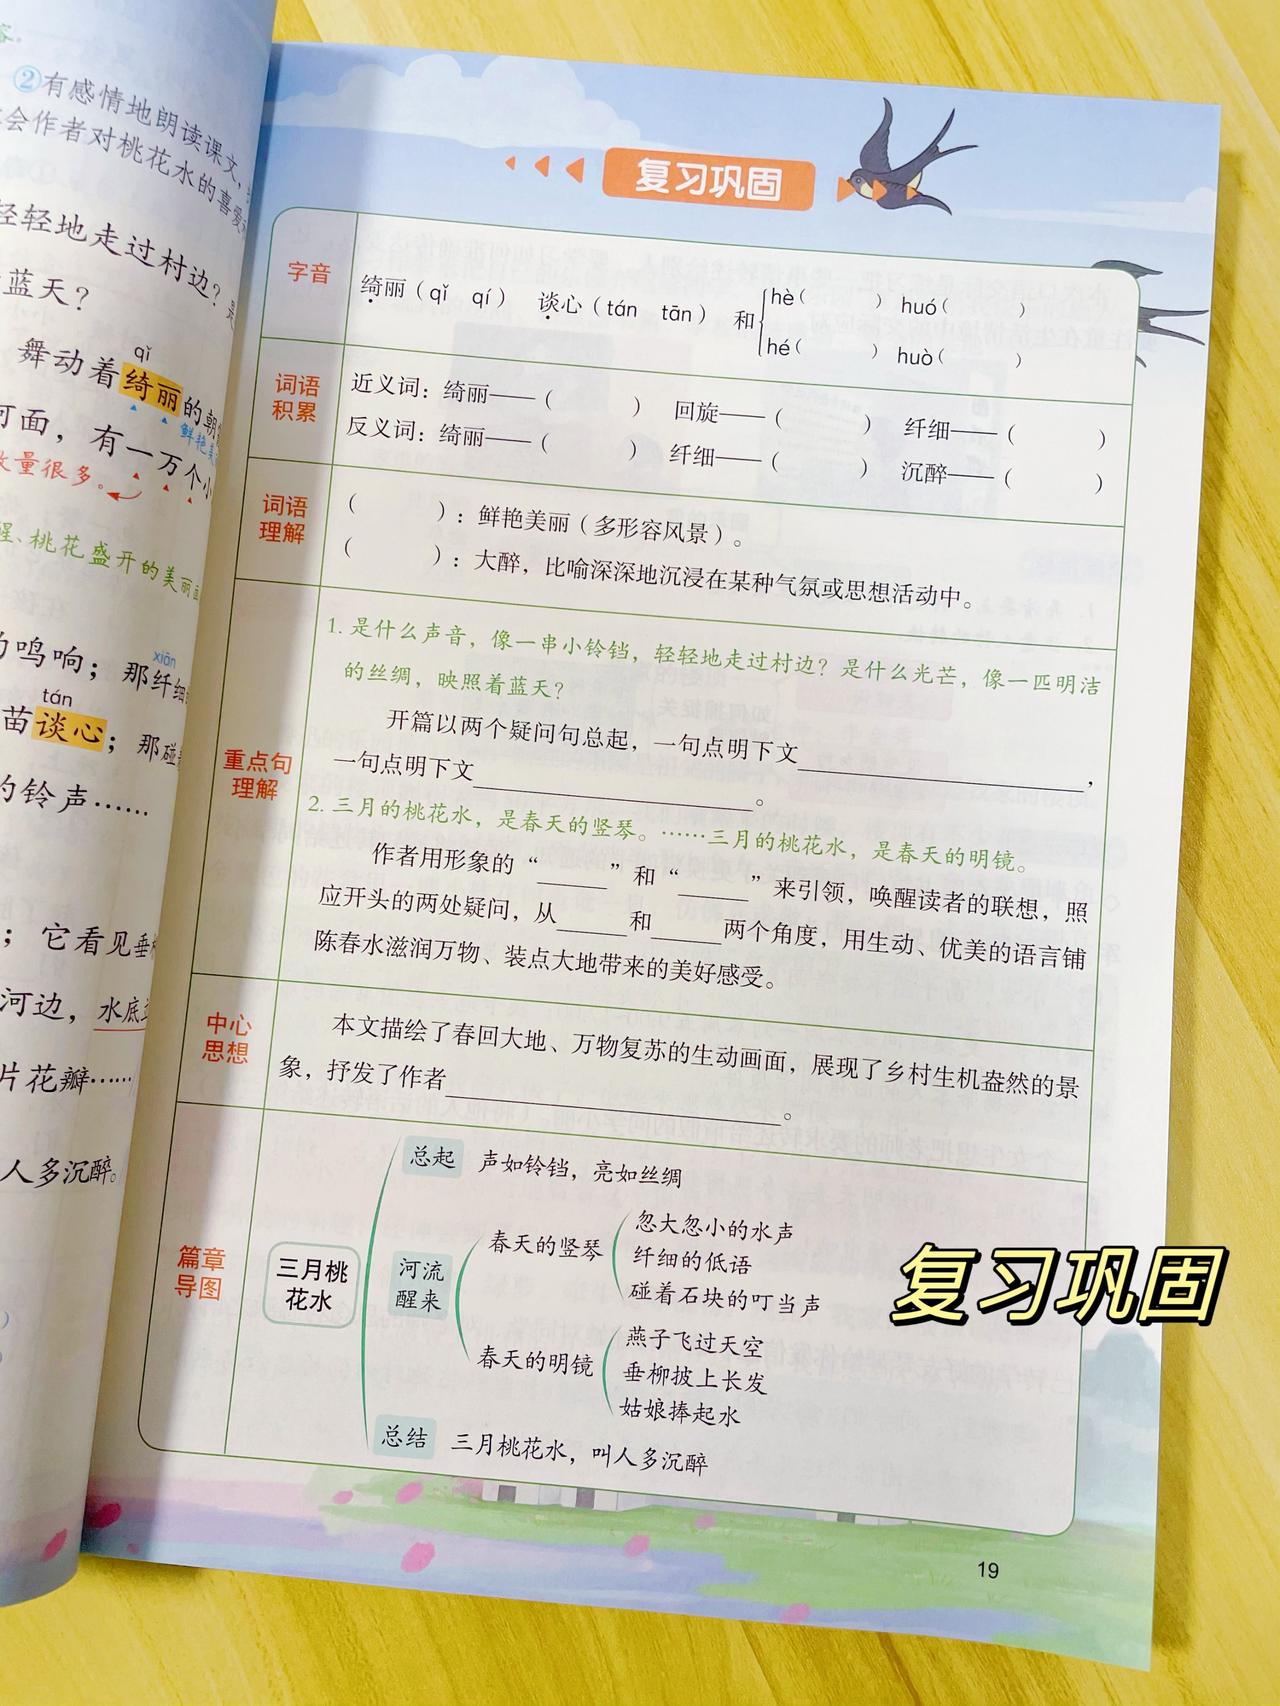 ②有感情地朗读课文，
会作者对桃花水的喜爱
轻轻地走过村边？是
蓝天？
qǐ
舞动着绮丽的朝
河面，有一万个小
鲜艳美
数量很多。
醒、桃花盛开的美丽画
的鸣响；那纤细
xiān
tán
苗谈心；那碰
的铃声……
；它看见垂
河边，水底
片花瓣……
人多沉醉。
复习巩固
字音
绮丽（qǐ qí） 谈心（tán tān） 和 hè（ ） huó（ ）
hé（ ） huò（ ）
词语
积累
近义词：绮丽——（ ） 回旋——（ ） 纤细——（ ）
反义词：绮丽——（ ） 纤细——（ ） 沉醉——（ ）
词语
理解
（ ）：鲜艳美丽（多形容风景）。
（ ）：大醉，比喻深深地沉浸在某种气氛或思想活动中。
重点句
理解
1. 是什么声音，像一串小铃铛，轻轻地走过村边？是什么光芒，像一匹明洁
的丝绸，映照着蓝天？
开篇以两个疑问句总起，一句点明下文____，
一句点明下文____。
2. 三月的桃花水，是春天的竖琴。……三月的桃花水，是春天的明镜。
作者用形象的“____”和“____”来引领，唤醒读者的联想，照
应开头的两处疑问，从____和____两个角度，用生动、优美的语言铺
陈春水滋润万物、装点大地带来的美好感受。
中心
思想
本文描绘了春回大地、万物复苏的生动画面，展现了乡村生机盎然的景
象，抒发了作者____。
篇章
导图
三月桃
花水
总起 声如铃铛，亮如丝绸
河流
醒来
春天的竖琴
忽大忽小的水声
纤细的低语
碰着石块的叮当声
春天的明镜
燕子飞过天空
垂柳披上长发
姑娘捧起水
总结 三月桃花水，叫人多沉醉
复习巩固
19